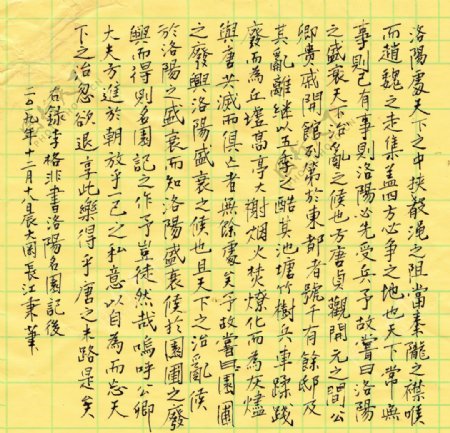 洛陽處天下之中挾殽澠之阻當秦隴之襟喉
而趙魏之走集蓋四方必爭之地也天下常無
事則已有事則洛陽必先受兵予故嘗曰洛陽
之盛衰天下治亂之候也方唐貞觀開元之間公
卿貴戚開館列第於東都者號千有餘邸及
其亂離繼以五季之酷其池塘竹樹兵車蹂踐
廢而為丘墟高亭大榭烟火焚燎化而為灰燼
與唐共滅而俱亡者無餘處矣予故嘗曰園圃
之廢興洛陽盛衰之候也且天下之治亂候
於洛陽之盛衰而知洛陽盛衰候於園圃之廢
興而得則名園記之作予豈徒然哉嗚呼公卿
大夫方進於朝放乎一己之私意以自為而忘天
下之治忽欲退享此樂得乎唐之末路是矣
右錄李格非書洛陽名園記後
二〇一九年十二月十八辰大長江秉筆